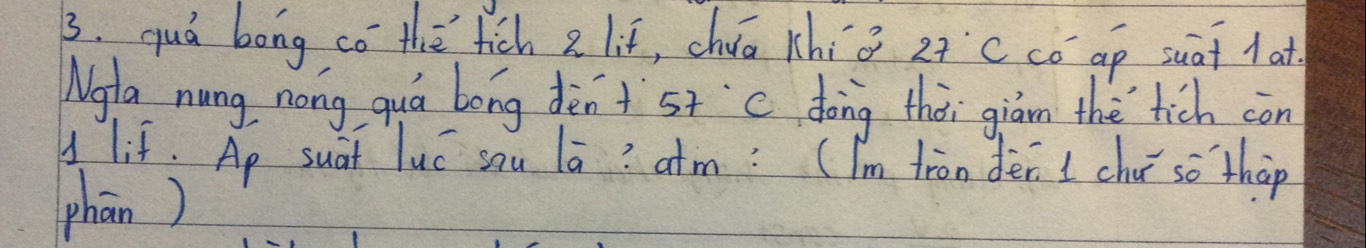 3. quả bóng có thể tích 2 lít, chứa khí ở 27°C có áp suất 1 at.
Ngta nung nóng quả bóng đến t° 57°C đồng thời giảm thể tích còn
1 lít. Áp suất lúc sau là ? atm : (lm tròn đến 1 chữ số thập
phân)